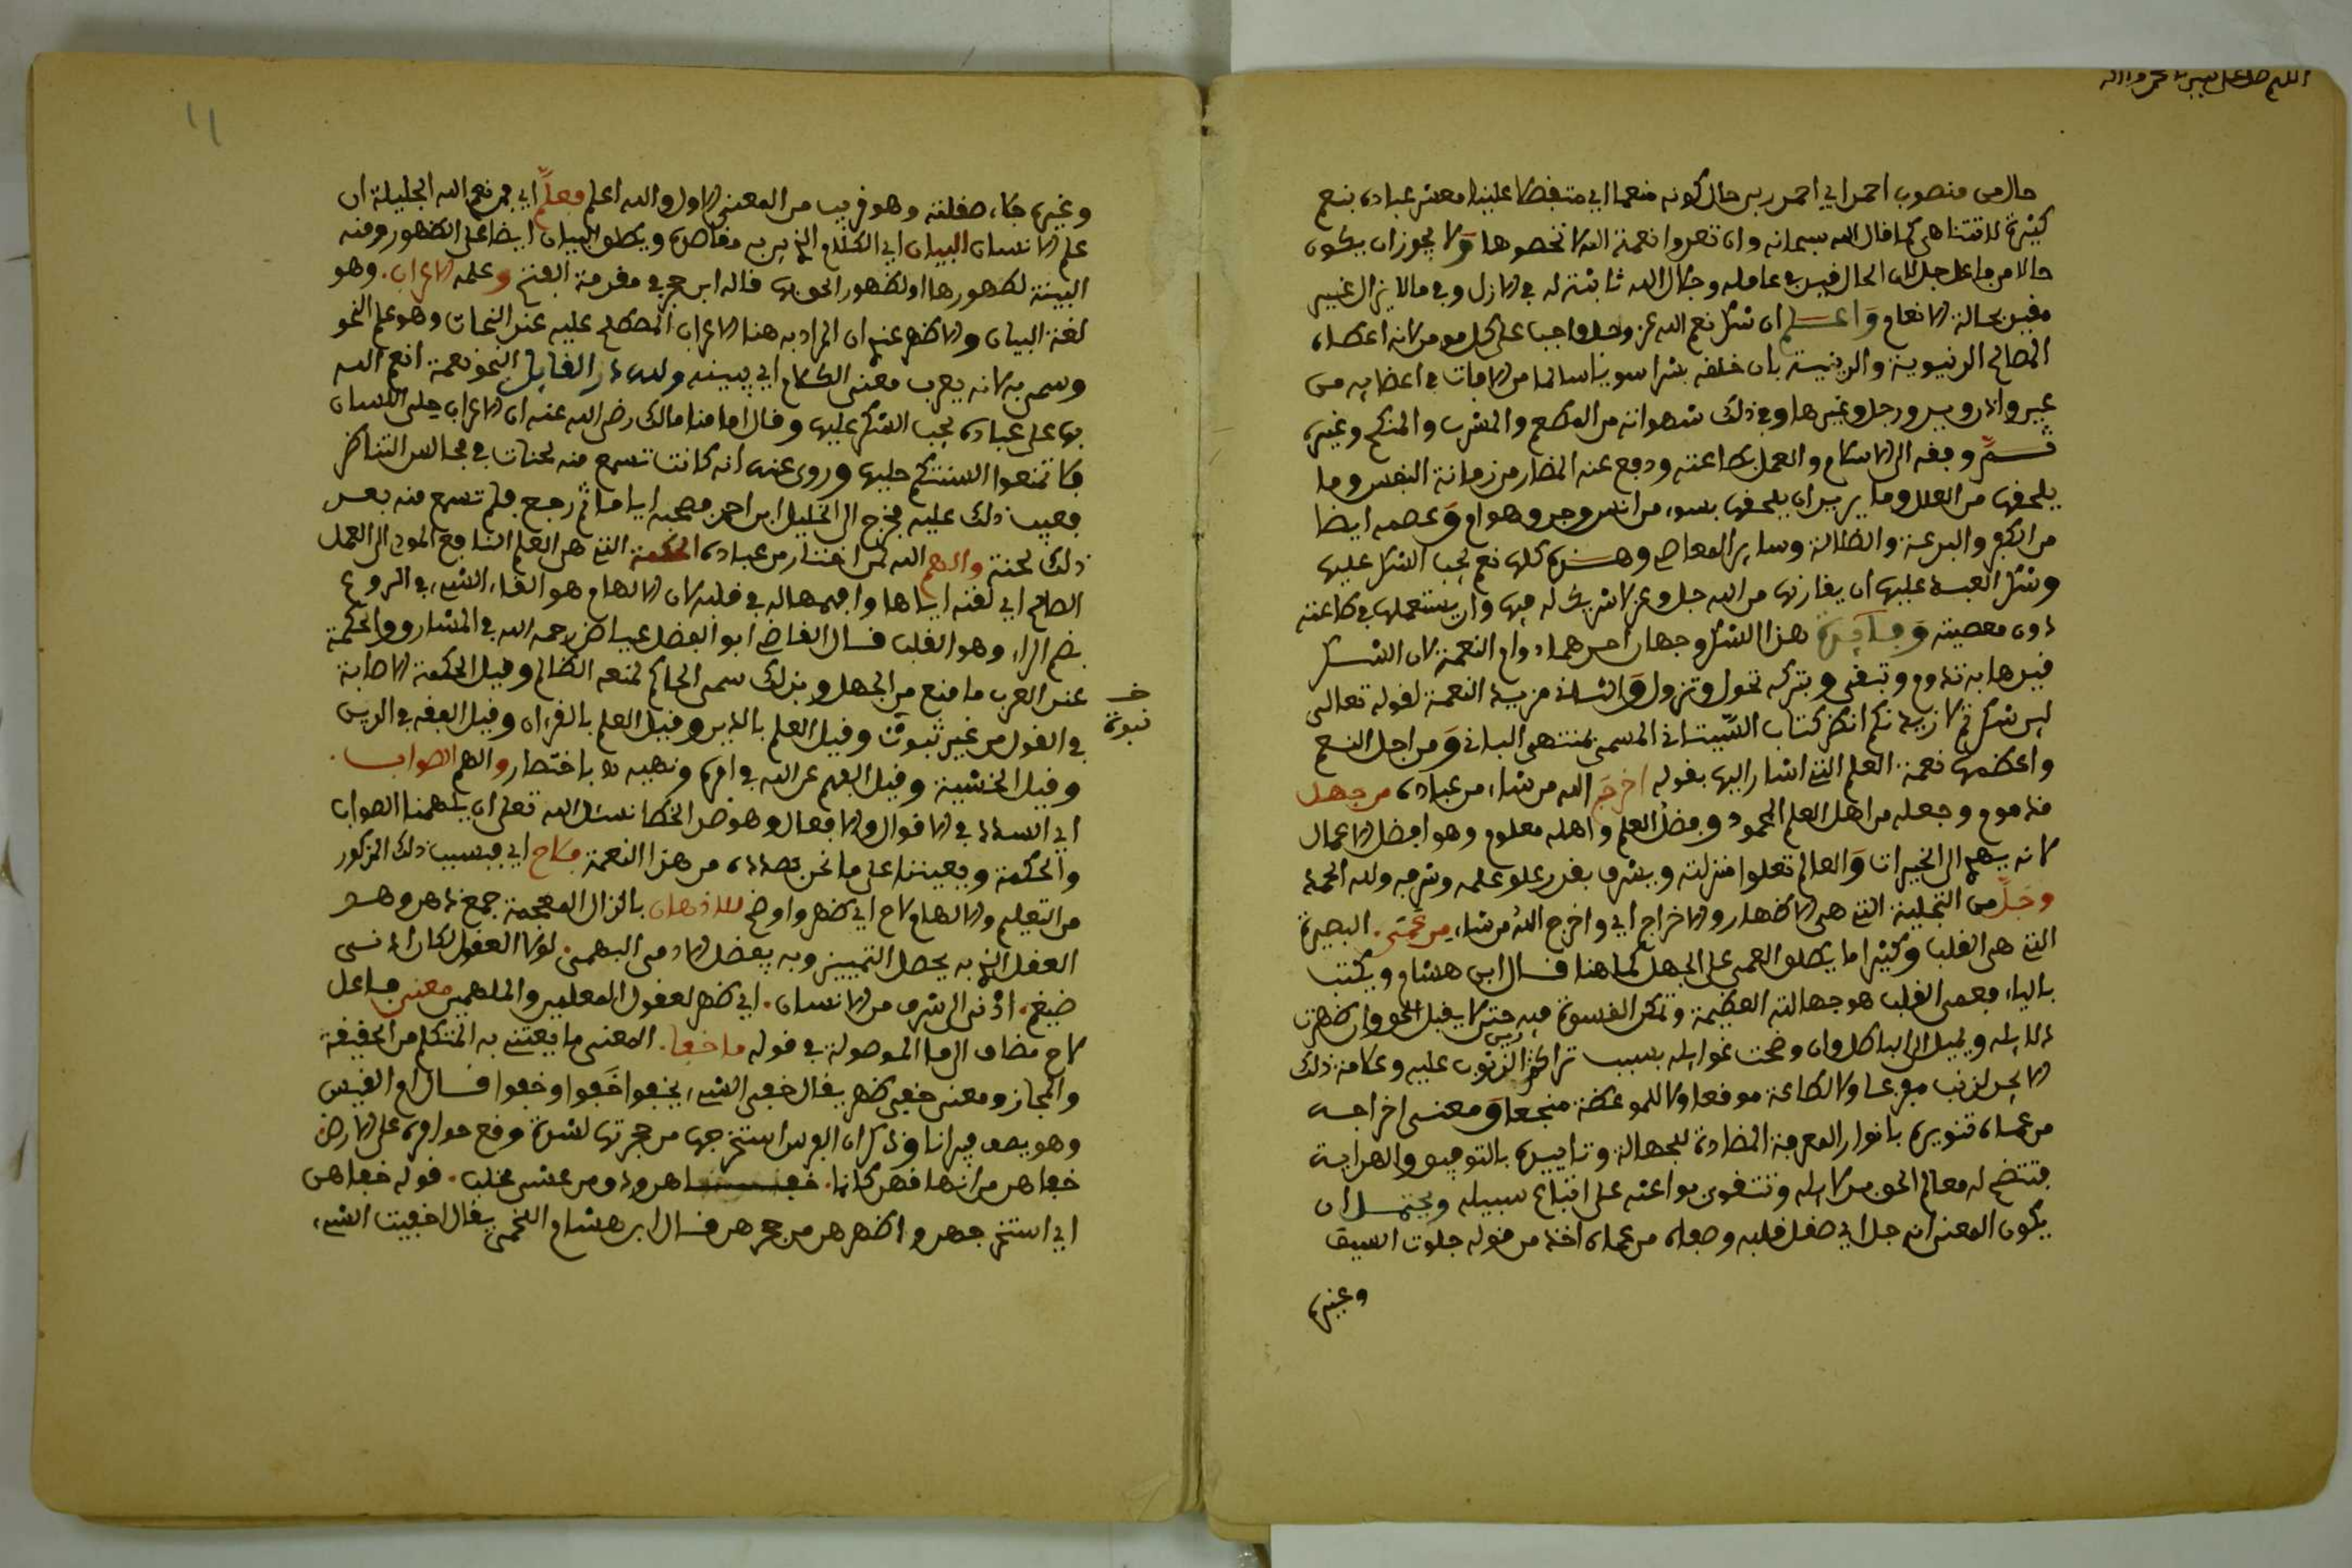 اللهم صل على سيدنا محمد وآله
حال من منصوب احمد اي احمد ربي حال كونه منعما اي متفضلا علينا معشر عباده بنعم
كثيرة لا تتناهى كما قال الله سبحانه وان تعدوا نعمة الله لا تحصوها ولا يجوز ان يكون
حالا من فاعل جل لان الحال قيد في عامله وجلال الله ثابتة له في الازل وفي ما لا يزال غير
مقيد بحالة الانعام واعلم ان شكر نعم الله عز وجل واجب على كل مومن لانه اعطاه
المصالح الدنيوية والدينية بان خلقه بشرا سويا سالما من الافات في اعضايه من
عين واذن ويد ورجل وغيرها وفي ذلك شهواته من المطعم والمشرب والمنكح وغيره
ثم وفقه الى الاسلام والعمل بطاعته ودفع عنه المضار من زمانة النفس وما
يلحقها من العلل وما يريد ان يلحقها بسوء من انس وجن وهوام وعصمه ايضا
من الكفر والبدعة والضلالة وساير المعاصي وهذه كلها نعم يجب الشكر عليها
وشكر العبد عليها ان يقارنها من الله جل وعز لا شريك له فيها وان يستعملها في طاعته
دون معصيته وفايدة هذا الشكر وجهان احدهما دوام النعمة لان الشكر
قيدها به تدوم وتبقى وبتركه تحول وتزول والثاني مزيد النعمة لقوله تعالى
لين شكرتم لازيدنكم انظر كتاب الشيتاني المسمى بمنتهى الباني ومن اجل النعم
واعظمها نعمة العلم التي اشار اليها بقوله اخرج الله من شاء من عباده من جهل
مذموم وجعله من اهل العلم المحمود وفضل العلم واهله معلوم وهو افضل الاعمال
لانه يهدي الى الخيرات والعالم تعلوا منزلته ويشرف بقدر علو علمه وشرفه ولله الحمد
وجلى من التجلية التي هي الاظهار والاخراج اي واخرج الله من شاء من عمى البصيرة
التي هي القلب وكثيرا ما يطلق العمى على الجهل كما هنا قال ابن هشام ويكتب
بالياء فعمى القلب هو جهالته العظيمة وتمكن القسوة فيه حتى لا يقبل الحق وان ظهرت
دلايله ويميل الى الباطل وان وضحت غوايله بسبب تراكم رين الذنوب عليه وعلامة ذلك
الا يجد لذنب موجعا ولا لطاعة موقعا ولا للموعظة منجعا ومعنى اخراجه
من عماه تنويره بانوار المعرفة المضادة للجهالة وتاييده بالتوفيق والهداية
فتتضح له معالم الحق من دلايله وتتقوى بواعثه على اتباع سبيله ويحتمل ان
يكون المعنى انه جلا اي صقل قلبه وصفاه من عماه اخذه من قوله جلوت السيف
وغيره
وغيره جلاء صقلته وهو قريب من المعنى الاول والله اعلم فعلم اي فمن نعم الله الجليلة ان
علم الانسان البيان اي الكلام الذي يبين به مقاصده ويطلق البيان ايضا على الظهور ومنه
البينة لظهورها او لظهور الحق بها قاله ابن حجر في مقدمة الفتح وعلمه الاعراب. وهو
لغة البيان والاظهر عندي ان المراد به هنا الاعراب المصطلح عليه عند النحات وهو علم النحو
وسمي به لانه يعرب معنى الكلام اي يبينه ولله در القايل النحو نعمة انعم الله
بها على عباده يجب الشكر عليها وقال امامنا مالك رضي الله عنه ان الاعراب حلي اللسان
فلا تمنعوا السنتكم حليها وروي عنه انه كانت تسمع منه لحنات في مجالس التناظر
فعيب ذلك عليه فخرج الى الخليل ابن احمد فصحبه اياما ثم رجع فلم تسمع منه بعد
ذلك لحنة والهم الله من اختار من عباده الحكمة التي هي العلم النافع المودي الى العمل
الصالح اي لقنه اياها وافهمها له في قلبه لان الالهام هو القاء الشيء في الروع
بضم الراء وهو القلب قال القاضي ابو الفضل عياض رحمه الله في المشارق والحكمة
عند العرب ما منع من الجهل وبذلك سمي الحاكم لمنعه الظالم وقيل الحكمة الاصابة
في القول من غير نبوة وقيل العلم بالدين وقيل العلم بالقرءان وقيل الفقه في الدين
خ نبوة
وقيل الخشية وقيل الفهم عن الله في امره ونهيه باختصار والهم الصواب.
اي السداد في الاقوال والافعال وهو ضد الخطا نسئل الله تعلى ان يلهمنا الصواب
والحكمة ويعيننا على ما نحن بصدده من هذا النعمة فلاح اي فبسبب ذلك المذكور
من التعليم والالهام لاح اي ظهر واوضح للاذهان بالذال المعجمة جمع ذهن وهو
العقل الذي به يحصل التمييز وبه يفضل الادمي البهمى. لولا العقول لكان ادنى
ضيغم. ادنى الى شرف من الانسان. اي ظهر لعقول المعلمين والملهمين معنى فاعل
لاح مضاف الى ما الموصولة في قوله ما خفا. المعنى ما يعتني به المتكلم من الحقيقة
والمجاز ومعنى خفى ظهر يقال خفى الشيء يخفوا خفوا وخفوا قال امرؤ القيس
وهو يصف فيرانا وذكر ان الفرس استخرجها من حجرتها لشدة وقع حوافره على الارض
خفاهن من انفاقهن كانما. خفاهن ودق من عشي مجلب. قوله خفاهن
اي استخرجهن واظهرهن من جحرهن قال ابن هشام اللخمي يقال اخفيت الشيء